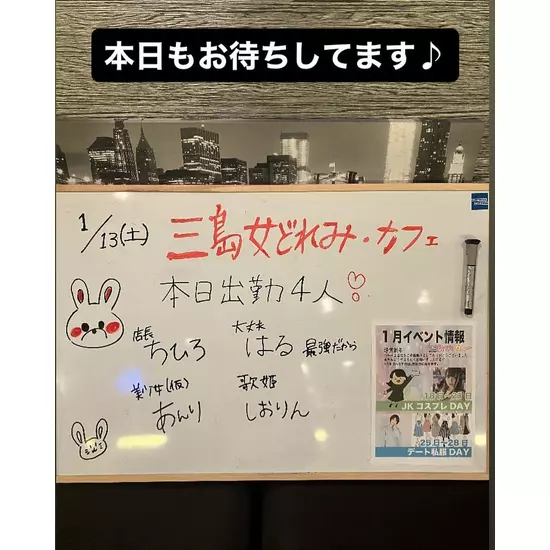 本日もお待ちしてます♪
1/13(土)
三島女どれみ・カフェ
本日出勤4人
店長
ちひろ
大丈夫
はる 最強だから
美少女(仮)
あんり
歌姫
しおりん
1月イベント情報
JKコスプレDAY
25日~28日
デート私服DAY